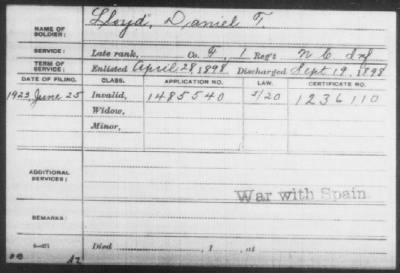 NAME OF SOLDIER: Lloyd, Daniel T.
SERVICE: Late rank, Co. G, 1 Reg't N C Inf
TERM OF SERVICE: Enlisted April 28, 1898 Discharged Sept 19, 1898
DATE OF FILING. CLASS. APPLICATION NO. LAW. CERTIFICATE NO.
1923, June 25 Invalid, 1485540 5/20 1236110
Widow,
Minor,
ADDITIONAL SERVICES:
War with Spain
REMARKS:
Died , 1 , at